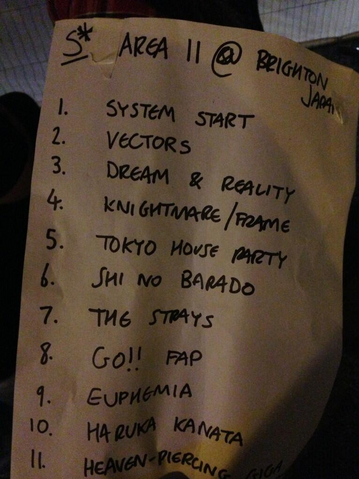 S* AREA 11 @ BRIGHTON
JAPAN
1. SYSTEM START
2. VECTORS
3. DREAM & REALITY
4. KNIGHTMARE/FRAME
5. TOKYO HOUSE PARTY
6. SHI NO BARADO
7. THE STRAYS
8. GO!! FAP
9. EUPHEMIA
10. HARUKA KANATA
11. HEAVEN-PIERCING GIGA